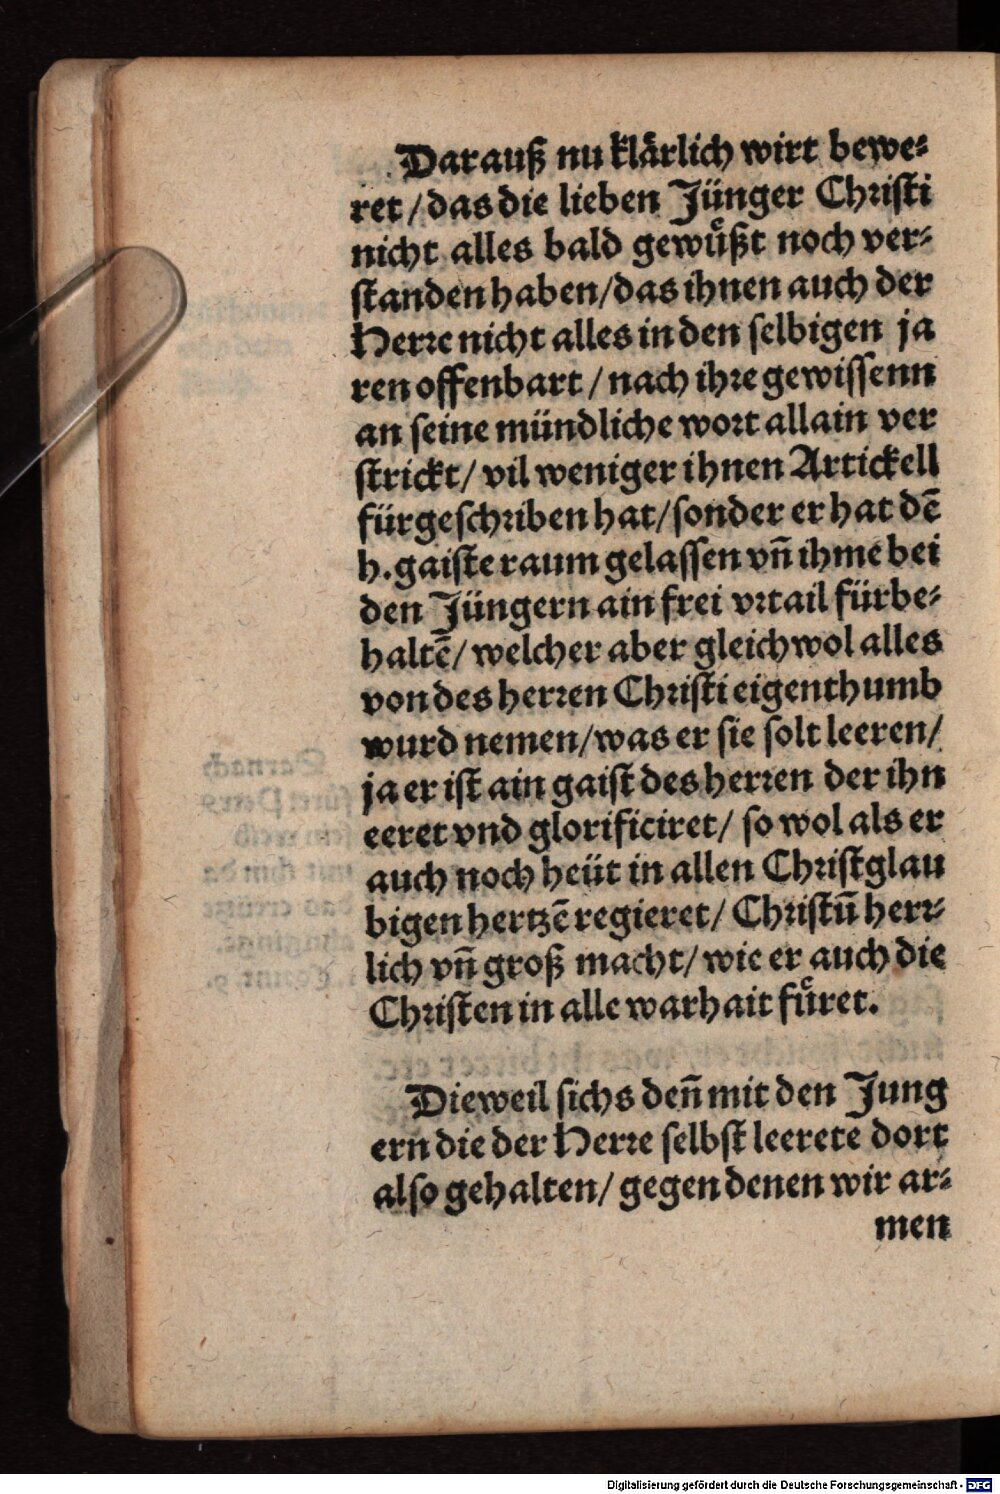 Darauß nu klårlich wirt bewe⸗
ret / das die lieben Jünger Christi
nicht alles bald gewůßt noch ver⸗
standen haben / das ihnen auch der
Herre nicht alles in den selbigen ja
ren offenbart / nach ihre gewissenn
an seine mündliche wort allain ver
strickt / vil weniger ihnen Artickell
fürgeschriben hat / sonder er hat dē
h. gaiste raum gelassen vñ ihme bei
den Jüngern ain frei vrtail fürbe⸗
haltē / welcher aber gleichwol alles
von des herren Christi eigenthumb
wurd nemen / was er sie solt leeren /
ja er ist ain gaist des herren der ihn
eeret vnd glorificiret / so wol als er
auch noch heüt in allen Christglau
bigen hertzē regieret / Christū herr⸗
lich vñ groß macht / wie er auch die
Christen in alle warhait fůret.
Dieweil sichs deñ mit den Jung
ern die der Herre selbst leerete dort
also gehalten / gegen denen wir ar⸗
men
Digitalisierung gefördert durch die Deutsche Forschungsgemeinschaft - DFG